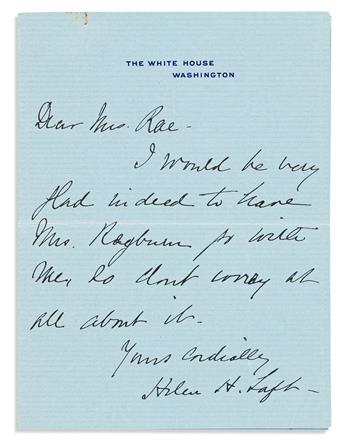 THE WHITE HOUSE
WASHINGTON
Dear Mrs. Rae -
I would be very
glad indeed to have
Mrs. Rayburn go with
me, so dont worry at
all about it -
Yours cordially
Helen H. Taft -